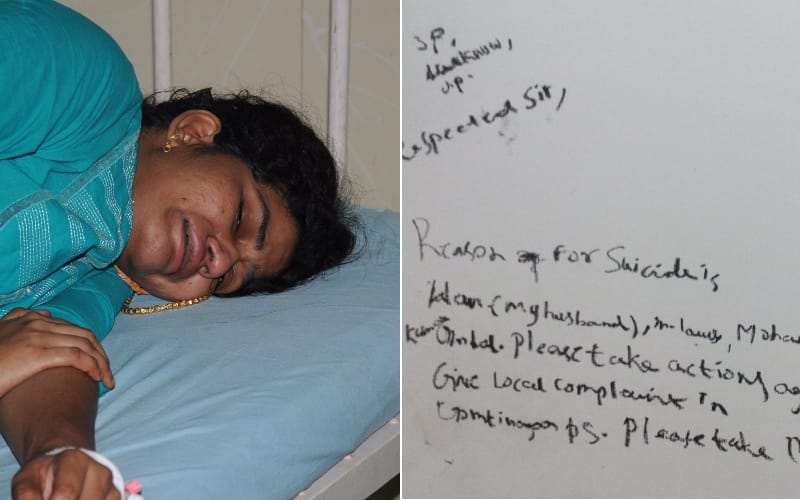 SP,
Lucknow,
U.P.
espected Sir,
Reason of For Suicide is
(my husband), in-laws, Moha
Please take actions ag
Give Local complaint In
Gomtinagar PS. Please take